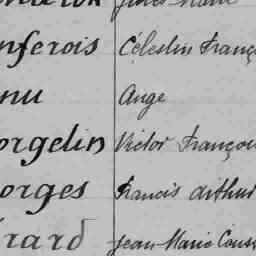 nferois Célestin Franço
nu Ange
orgelin Victor Françoi
orges Francis Arthur
rard Jean Marie Cons